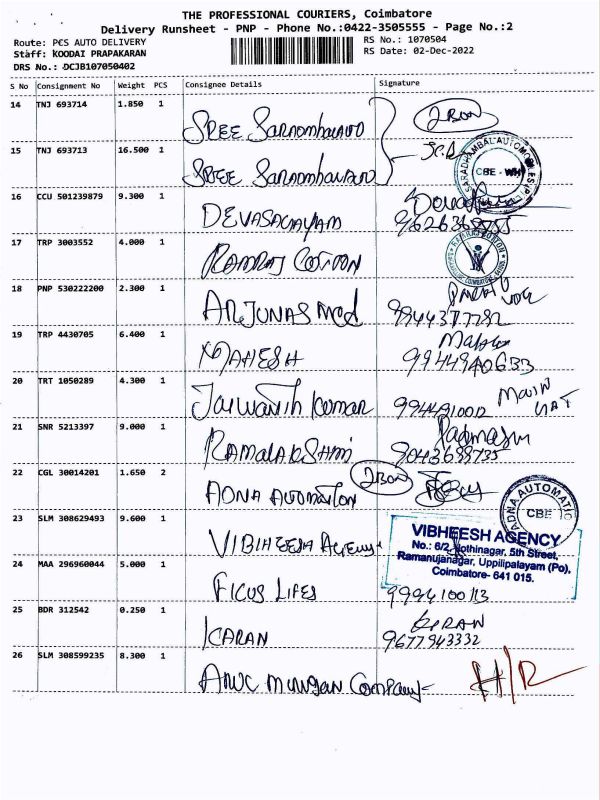 THE PROFESSIONAL COURIERS, Coimbatore
Delivery Runsheet - PNP - Phone No.:0422-3505555 - Page No.:2
Route: PCS AUTO DELIVERY
RS No.: 1070504
Staff: KOODAI PRAPAKARAN
RS Date: 02-Dec-2022
DRS No.: DCJB107050402
S No Consignment No Weight PCS Consignee Details Signature
14 TNJ 693714 1.850 1
SREE
15 TNJ 693713 16.500 1
SREE
CBE - WH
16 CCU 501239879 9.300 1
DEVASAGAYAM
17 TRP 3003552 4.000 1
RAMRAJ COTTON
18 PNP 530222200 2.300 1
ARJUNAS Med
19 TRP 4430705 6.400 1
MAHESH
20 TRT 1050289 4.300 1
Jaiwanth Kumar
21 SNR 5213397 9.000 1
RAMALAKSHMI 9043698735
22 CGL 30014201 1.650 2
ADNA AUTOMATION
ADNA AUTOMATIC
CBE
23 SLM 308629493 9.600 1
VIBHEESH Agency
VIBHEESH AGENCY
No.: 6/2, Jothinagar, 5th Street,
Ramanujanagar, Uppilipalayam (Po),
Coimbatore- 641 015.
24 MAA 296960044 5.000 1
FICUS LIFES 9994100113
25 BDR 312542 0.250 1
KIRAN
KARAN 9677943332
26 SLM 308599235 8.300 1
Company H/R